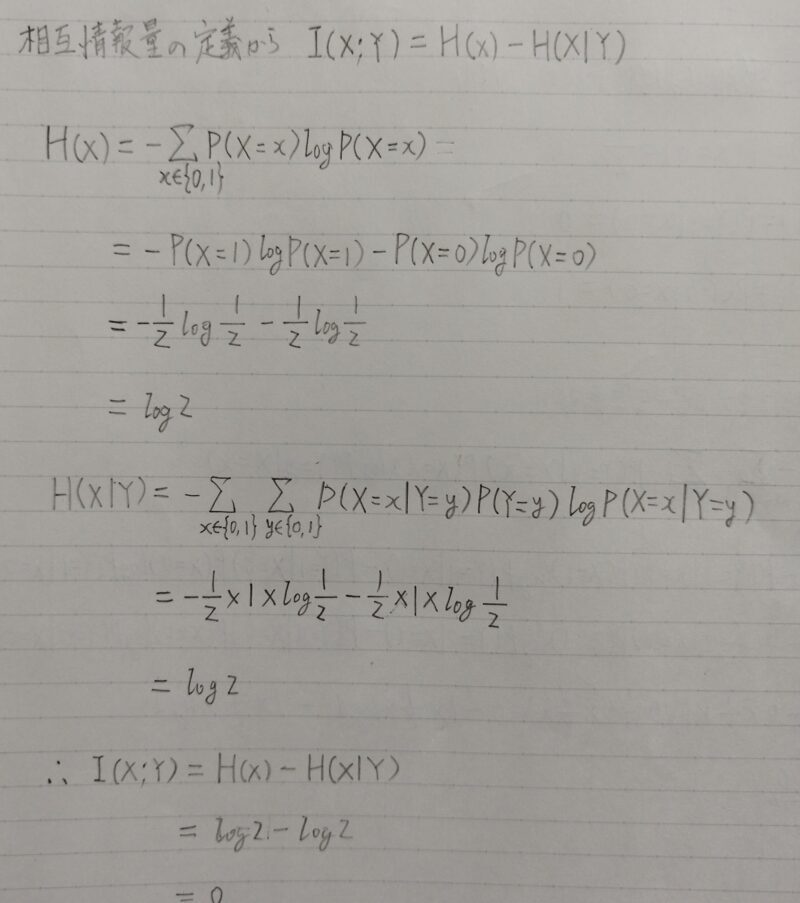 相互情報量の定義から I(X;Y) = H(X) - H(X|Y)
H(X) = -∑_{x∈{0,1}} P(X=x) log P(X=x)
= -P(X=1) log P(X=1) - P(X=0) log P(X=0)
= -1/2 log 1/2 - 1/2 log 1/2
= log 2
H(X|Y) = -∑_{x∈{0,1}} ∑_{y∈{0,1}} P(X=x|Y=y) P(Y=y) log P(X=x|Y=y)
= -1/2 × 1 × log 1/2 - 1/2 × 1 × log 1/2
= log 2
∴ I(X;Y) = H(X) - H(X|Y)
= log 2 - log 2
= 0